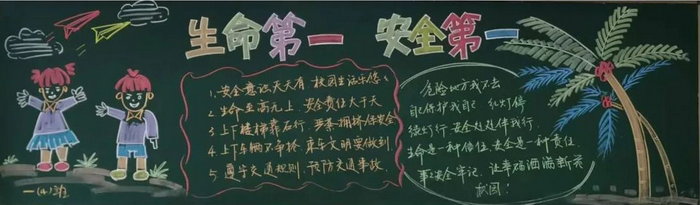 生命第一 安全第一
1. 安全意识天天有 校园生活乐悠悠
2. 生命至高无上，安全责任大于天
3. 上下楼梯靠右行，严禁拥挤保安全
4. 上下车辆不争挤，乘车文明要做到
5. 遵守交通规则，预防交通事故.
危险地方我不去
自保护我自己 红灯停
绿灯行 安全处处伴我行
生命是一种信任，安全是一种责任
事安全牢记，让幸福洒满新英
校园！
一（4）班